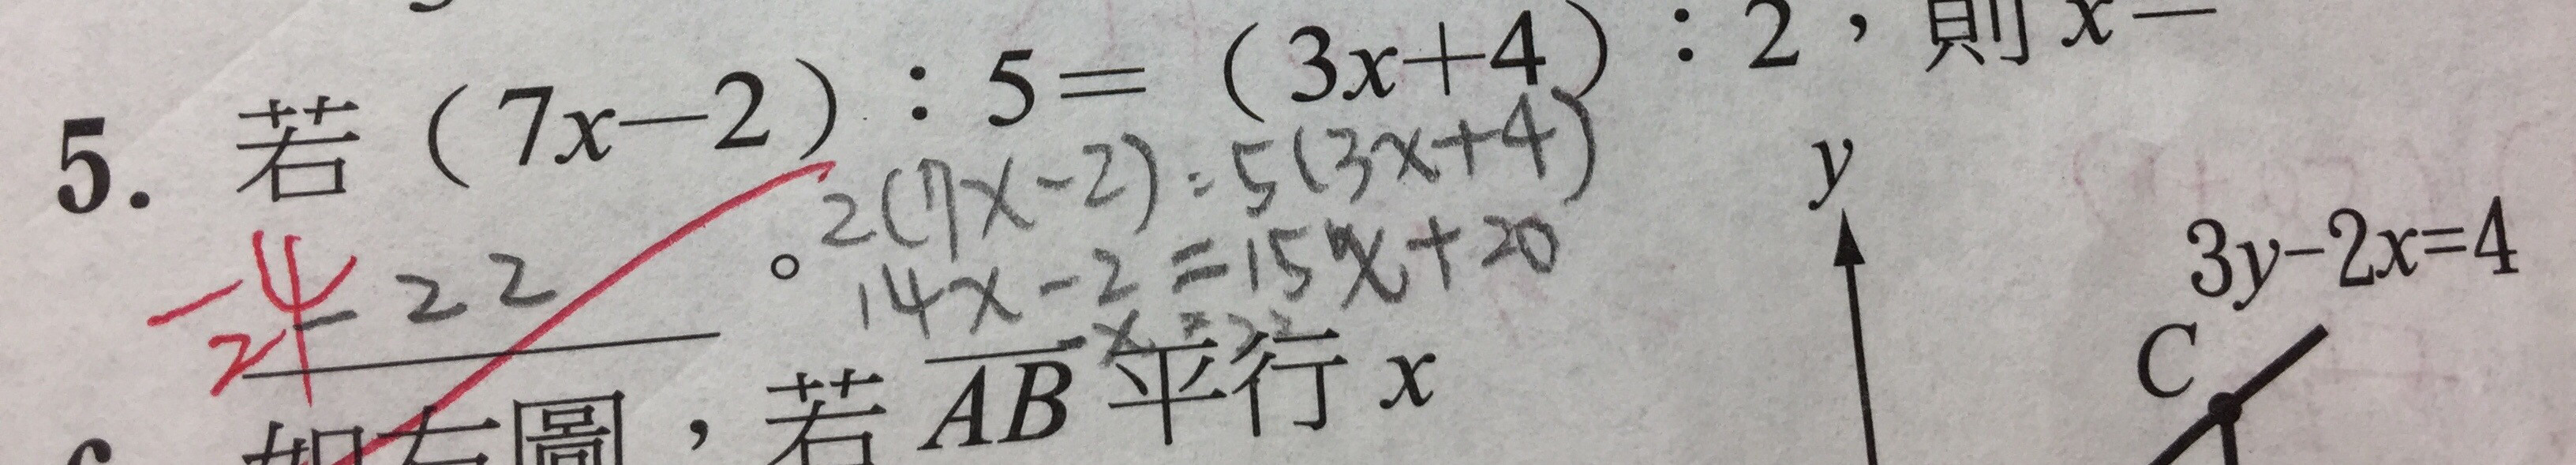 5. 若（7x－2）：5＝（3x＋4）：2，則 x＝
2(7x-2)=5(3x+4)
-22 。
14x-2=15x+20
-x=22
-24
如右圖，若 AB 平行 x
y
3y-2x=4
C